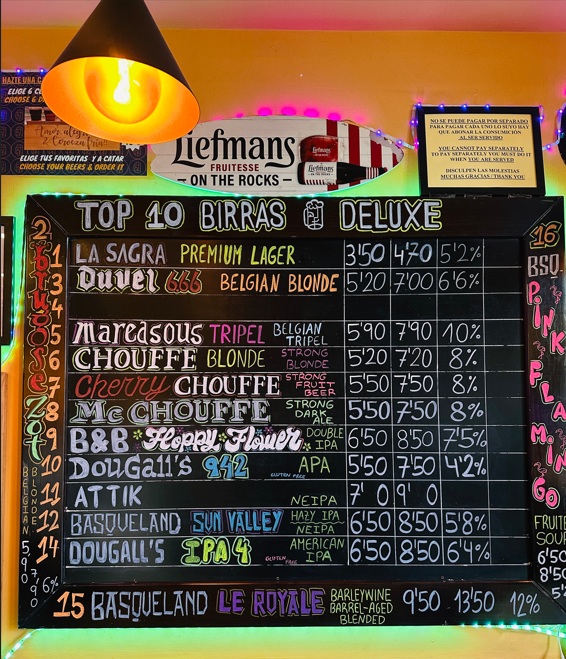 HAZTE UNA C
ELIGE 6 C
CHOOSE 6 B
Amor, alegr
y Cerveza fría!
ELIGE TUS FAVORITAS Y A CATAR
CHOOSE YOUR BEERS & ORDER IT
Liefmans
FRUITESSE
- ON THE ROCKS -
Liefmans
NO SE PUEDE PAGAR POR SEPARADO
PARA PAGAR CADA UNO LO SUYO HAY
QUE ABONAR LA CONSUMICIÓN
AL SER SERVIDO
YOU CANNOT PAY SEPARATELY
TO PAY SEPARATELY YOU MUST DO IT
WHEN YOU ARE SERVED
DISCULPEN LAS MOLESTIAS
MUCHAS GRACIAS / THANK YOU
TOP 10 BIRRAS DELUXE
1 LA SAGRA PREMIUM LAGER 3'50 4'70 5'2%
3 Duvel 666 BELGIAN BLONDE 5'20 7'00 6'6%
4
5 Maredsous TRIPEL BELGIAN TRIPEL 5'90 7'90 10%
6 CHOUFFE BLONDE STRONG BLONDE 5'20 7'20 8%
7 Cherry CHOUFFE STRONG FRUIT BEER 5'50 7'50 8%
8 Mc CHOUFFE STRONG DARK ALE 5'50 7'50 8%
9 B&B Hoppy Flower DOUBLE IPA 6'50 8'50 7'5%
10 DOUGALL'S 942 GLUTEN FREE APA 5'50 7'50 4'2%
11 ATTIK NEIPA 7' 0 9' 0
12 BASQUELAND SUN VALLEY HAZY IPA NEIPA 6'50 8'50 5'8%
14 DOUGALL'S IPA 4 GLUTEN FREE AMERICAN IPA 6'50 8'50 6'4%
15 BASQUELAND LE ROYALE BARLEYWINE BARREL-AGED BLENDED 9'50 13'50 12%
2 Brugse Zot
BELGIAN BLONDE
5'90
7'90
6%
16
BSQ
PINK
FLAMINGO
FRUITE
SOUR
6'50
8'50